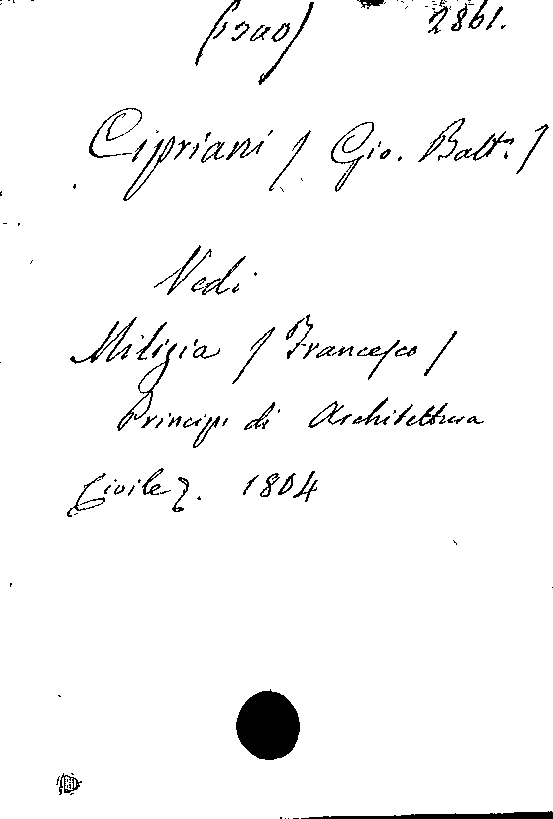 2861.
Cipriani / Gio. Batt.a /
Vedi
Milizia / Francesco /
Principi di Architettura
Civile. 1804